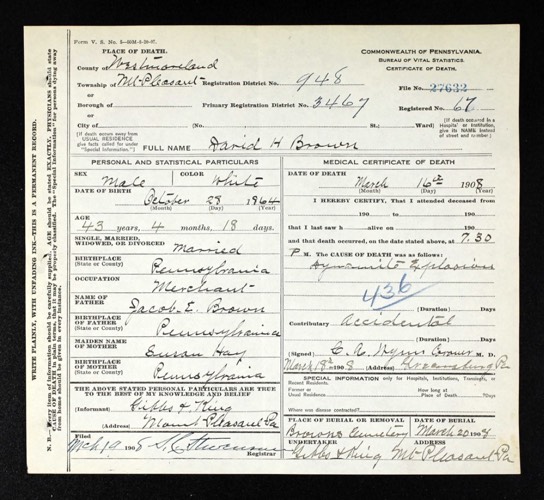 Form V. S. No. 5-50M-5-28-07.
PLACE OF DEATH.
County of Westmoreland
Township of Mt Pleasant Registration District No. 948
or
Borough of Primary Registration District No. 3467
or
City of (No. St.; Ward)
COMMONWEALTH OF PENNSYLVANIA.
BUREAU OF VITAL STATISTICS.
CERTIFICATE OF DEATH.
File No. 27632
Registered No. 67
[If death occurred in a Hospital or Institution, give its NAME instead of street and number.]
[If death occurs away from USUAL RESIDENCE give facts called for under "Special Information."]
FULL NAME David H Brown
PERSONAL AND STATISTICAL PARTICULARS
SEX Male COLOR White
DATE OF BIRTH October 28 1864
(Month) (Day) (Year)
AGE
43 years, 4 months, 18 days.
SINGLE, MARRIED, WIDOWED, OR DIVORCED Married
BIRTHPLACE (State or County) Pennsylvania
OCCUPATION Merchant
NAME OF FATHER Jacob E. Brown
BIRTHPLACE OF FATHER (State or County) Pennsylvania
MAIDEN NAME OF MOTHER Susan Hay
BIRTHPLACE OF MOTHER (State or County) Pennsylvania
THE ABOVE STATED PERSONAL PARTICULARS ARE TRUE
TO THE BEST OF MY KNOWLEDGE AND BELIEF
(Informant) Gibbs & King
(Address) Mount Pleasant Pa
Filed Mch 19 1908
Registrar
MEDICAL CERTIFICATE OF DEATH
DATE OF DEATH March 16th 1908
(Month) (Day) (Year)
I HEREBY CERTIFY, That I attended deceased from
190 to 190
that I last saw h alive on 190
and that death occurred, on the date stated above, at 7.30
P M. The CAUSE OF DEATH was as follows:
Dynamite Explosion
436
(Duration) Days
Contributory Accidental
(Duration) Days
(Signed) C. A. Wynn Coroner M. D.
March 18th 1908 (Address) Greensburg Pa
SPECIAL INFORMATION only for Hospitals, Institutions, Transients, or Recent Residents.
Former or Usual Residence
How long at Place of Death? Days
Where was disease contracted?
PLACE OF BURIAL OR REMOVAL DATE OF BURIAL
Browns Cemetery March 20 1908
UNDERTAKER ADDRESS
Gibbs & King Mt Pleasant Pa
WRITE PLAINLY, WITH UNFADING INK—THIS IS A PERMANENT RECORD.